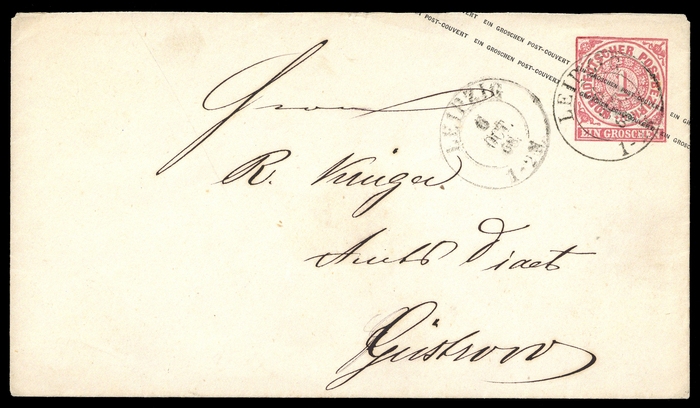 EIN GROSCHEN POST-COUVERT EIN GROSCHEN POST-COUVERT
EIN GROSCHEN POST-COUVERT EIN GROSCHEN POST-COUVERT
1
EIN GROSCHEN
LEIPZIG
LEIPZIG
6
OCT.
1-2N.
Herrn
R. Krüger
Amts Diaet
Güstrow